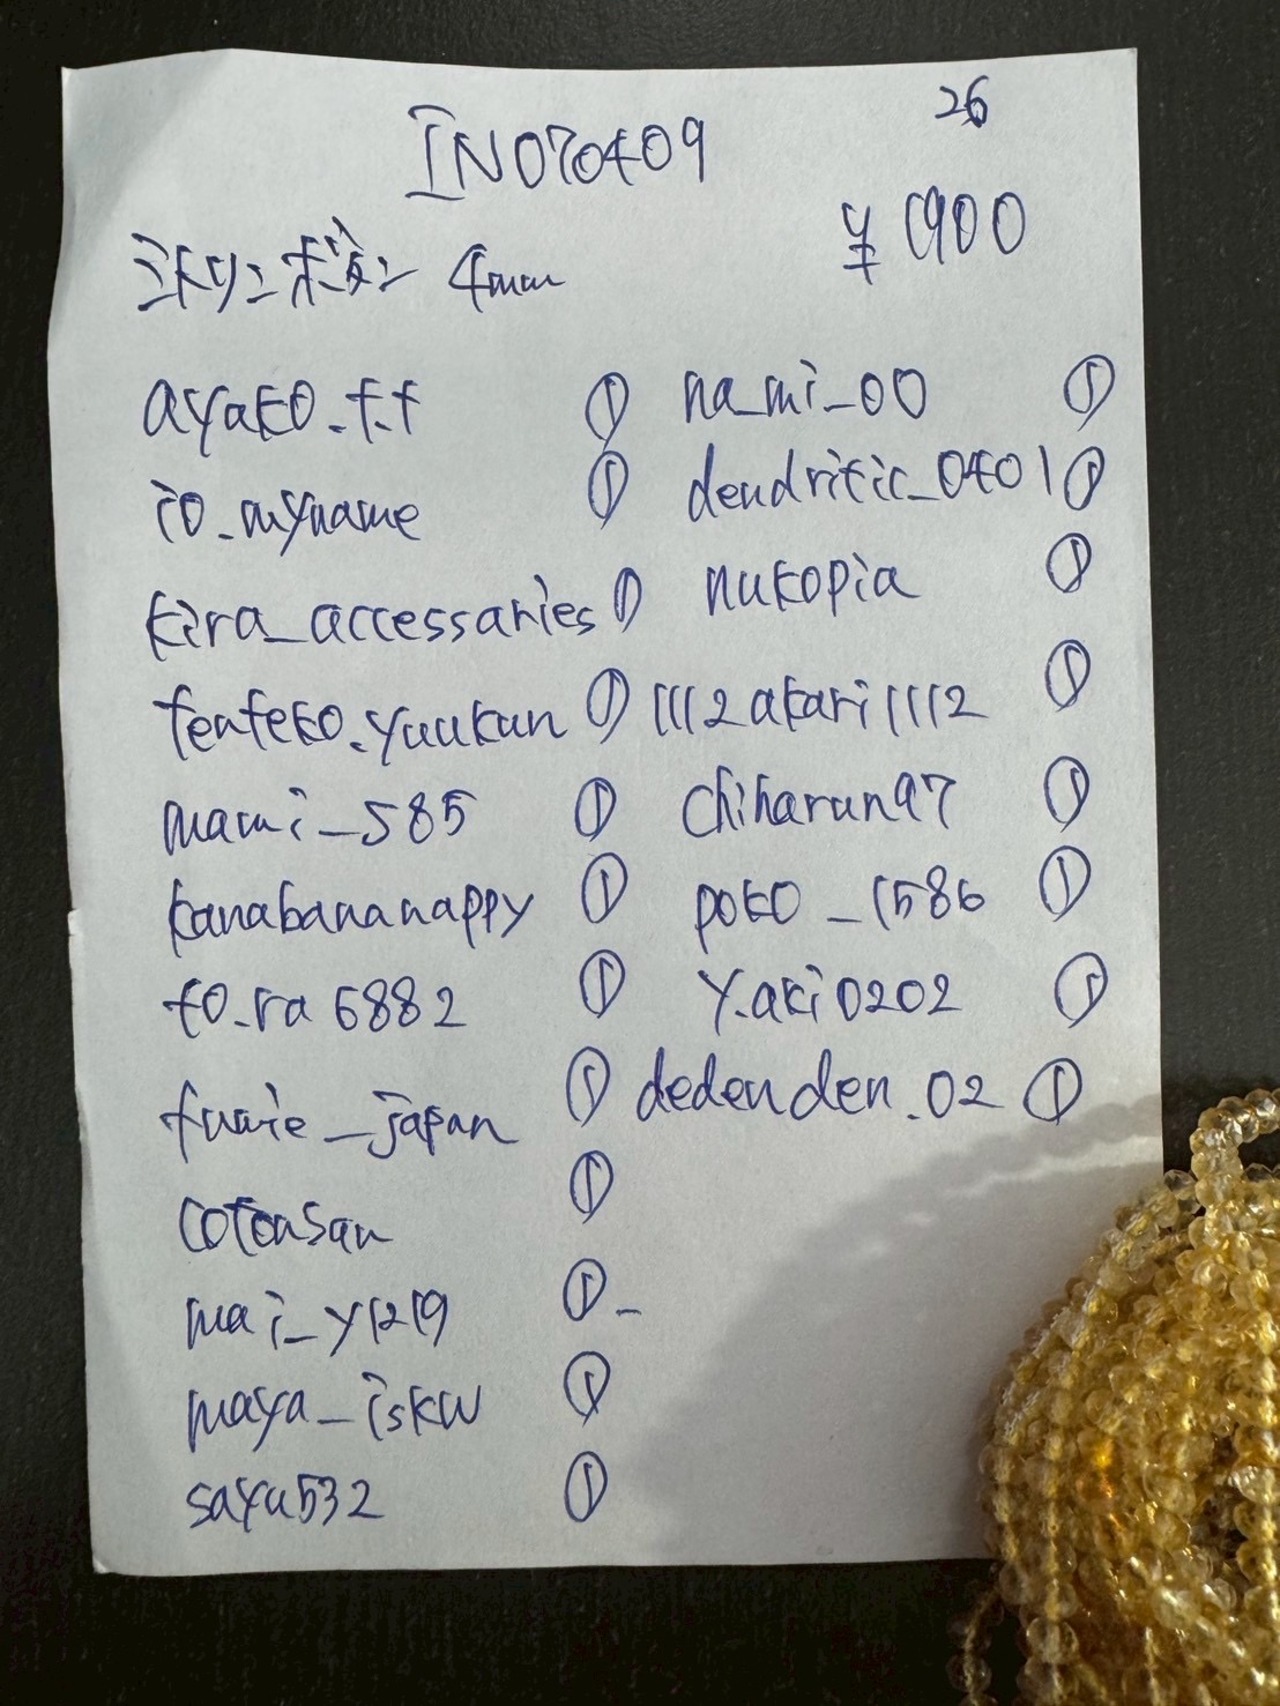 26
IN070409
¥1900
シトリンボタン 4mm
ayako.t.t ①
io_myname ①
kira_accessaries ①
tenteko.yuukun ①
mami_585 ①
kanabananappy ①
to.ra6882 ①
fumie_japan ①
cotonsan ①
mai_y1219 ①
maya_iskw ①
sayu532 ①
na_mi_00 ①
dendritic_0401 ①
nukopia ①
1112akari1112 ①
chiharun97 ①
poko_1586 ①
y.aki0202 ①
dedenden.02 ①